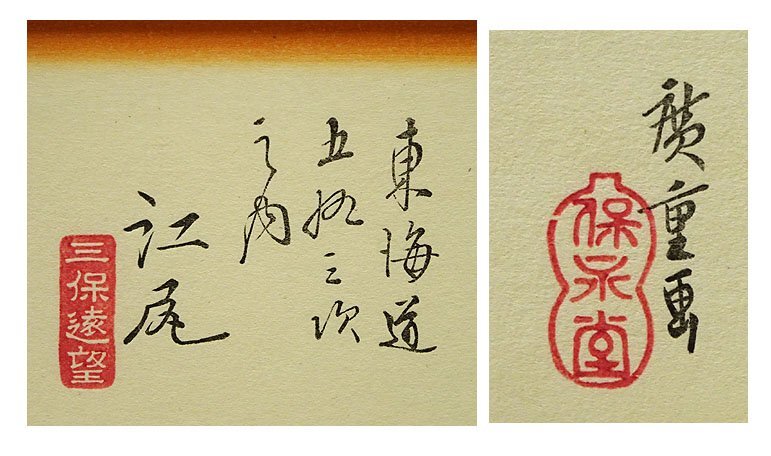 東海道
五拾三次
之内
江尻
三保遠望
廣重画
保永堂